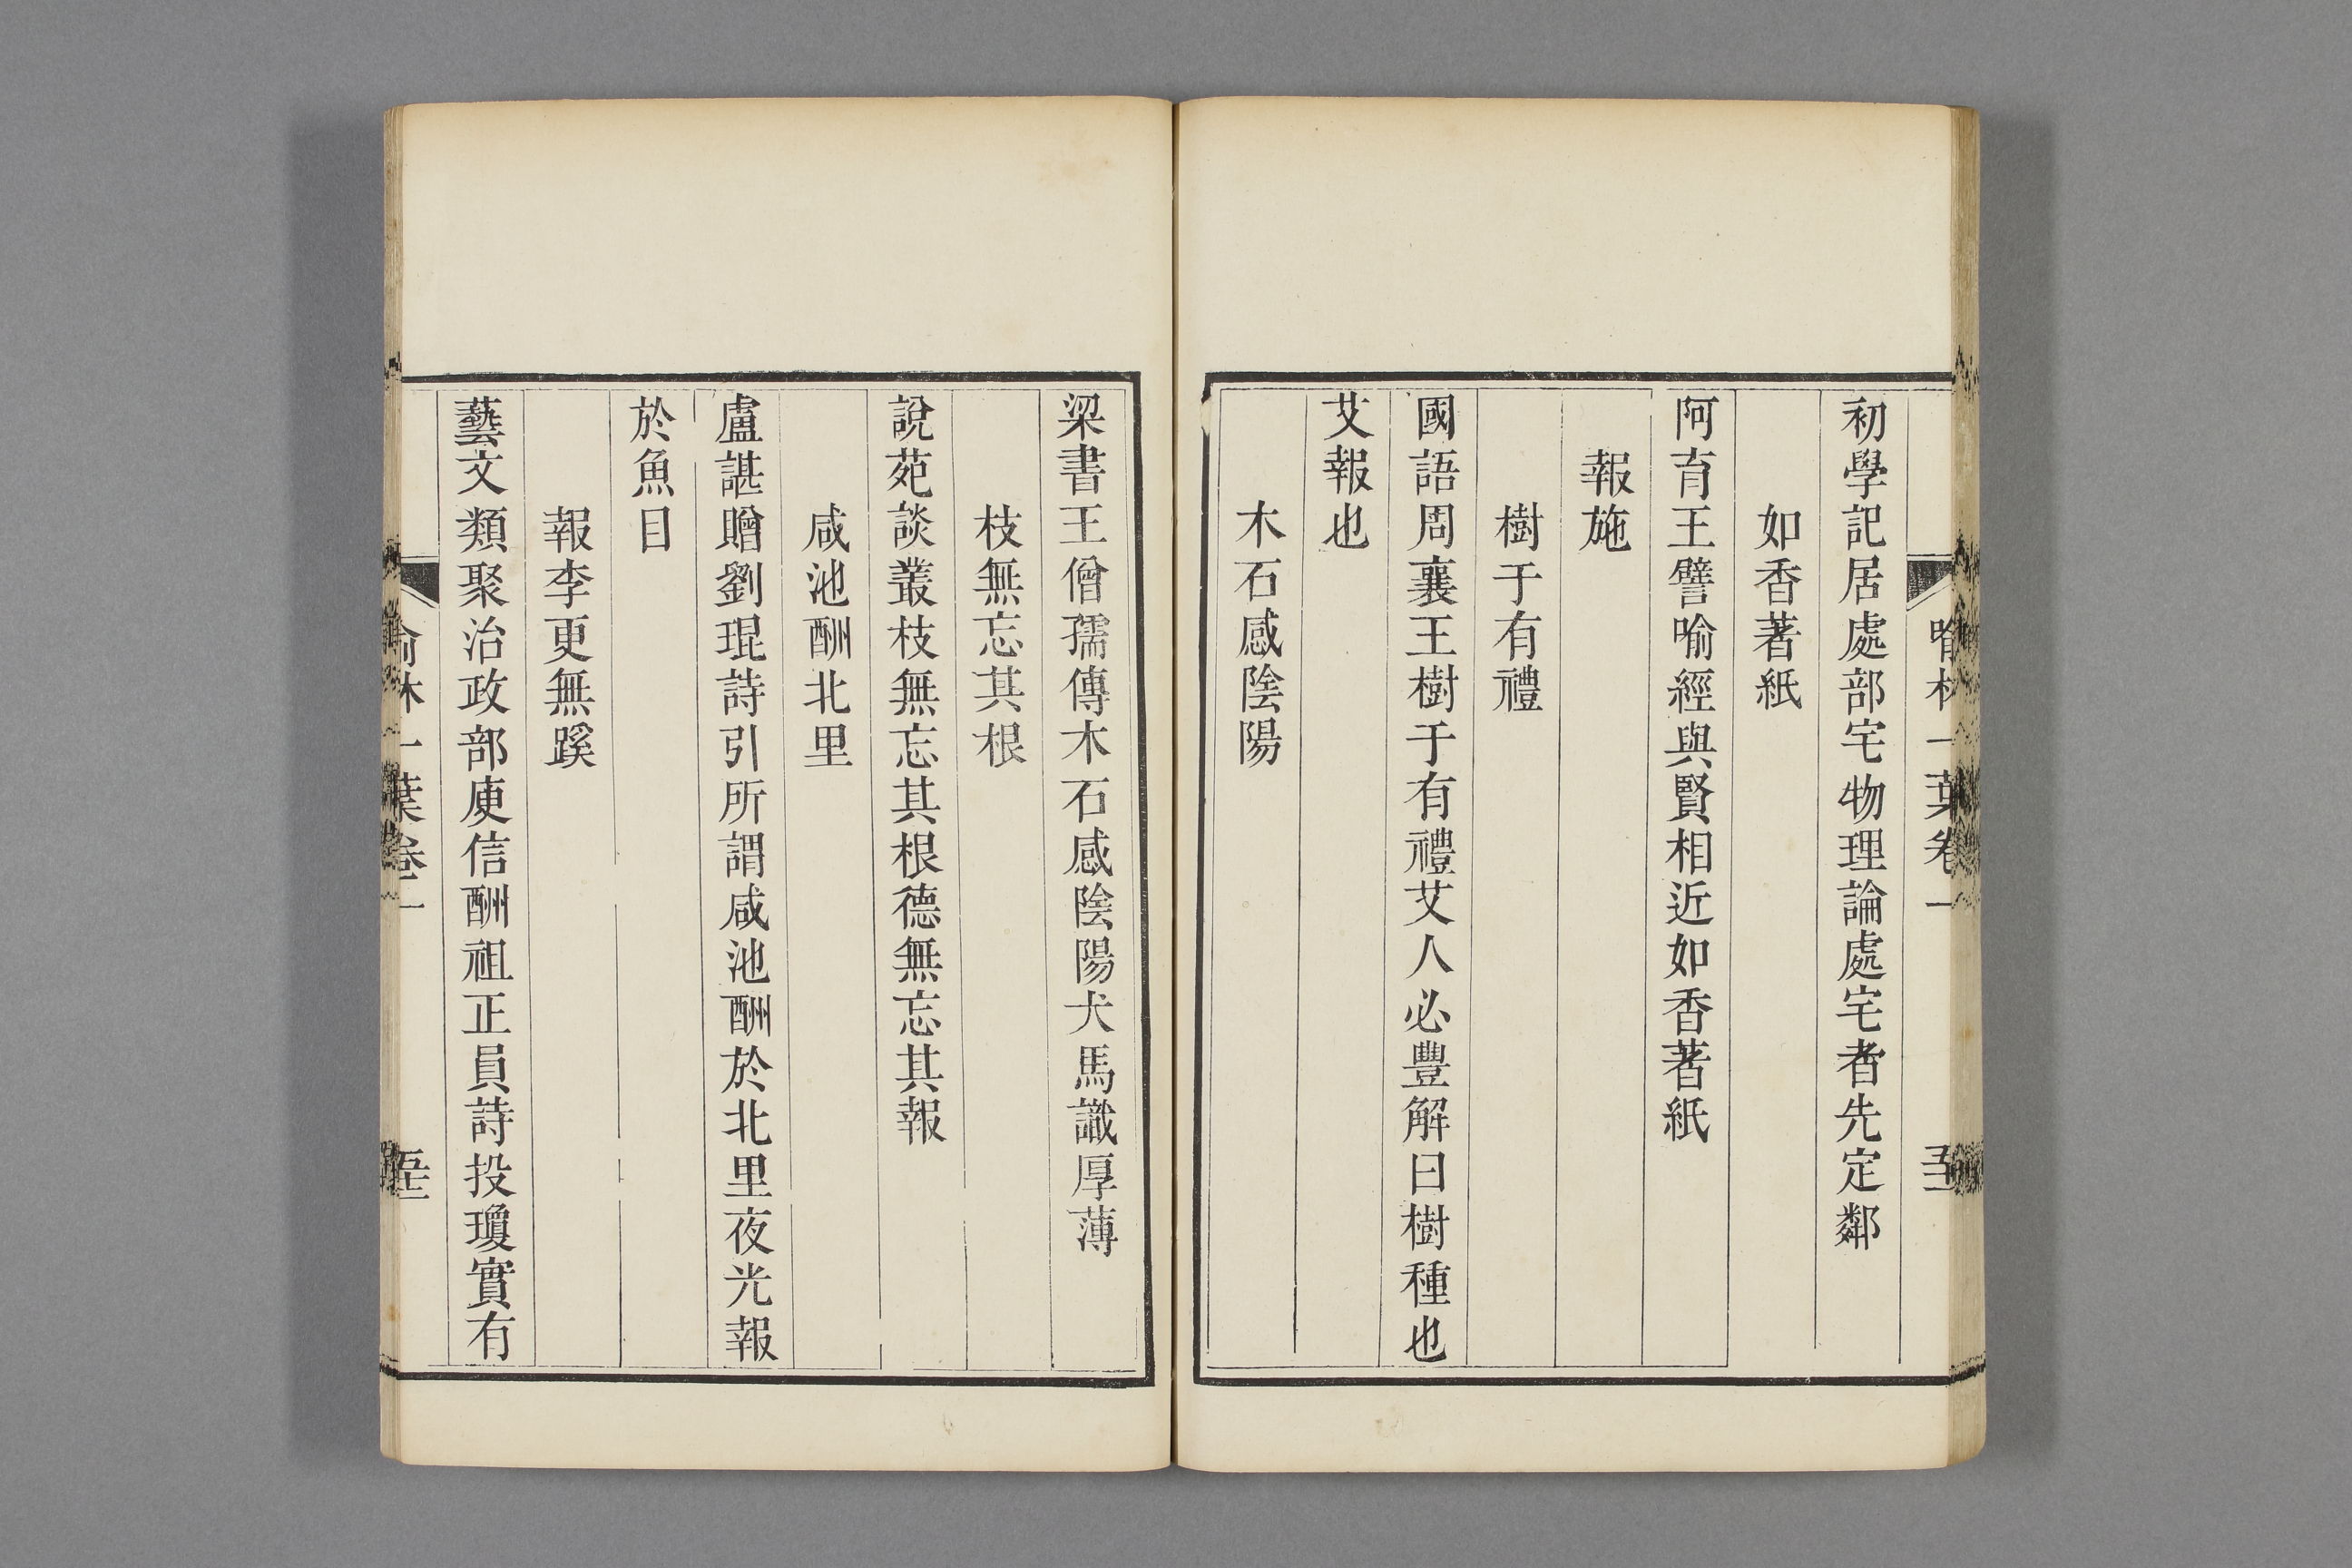 喻林一葉卷一
五十一
初學記居處部宅物理論處宅者先定鄰
如香著紙
阿育王譬喻經與賢相近如香著紙
報施
樹于有禮
國語周襄王樹于有禮艾人必豐解曰樹種也
艾報也
木石感陰陽
梁書王僧孺傳木石感陰陽犬馬識厚薄
枝無忘其根
說苑談叢枝無忘其根德無忘其報
咸池酬北里
盧諶贈劉琨詩引所謂咸池酬於北里夜光報
於魚目
報李更無蹊
藝文類聚治政部庾信酬祖正員詩投瓊實有
喻林一葉卷一